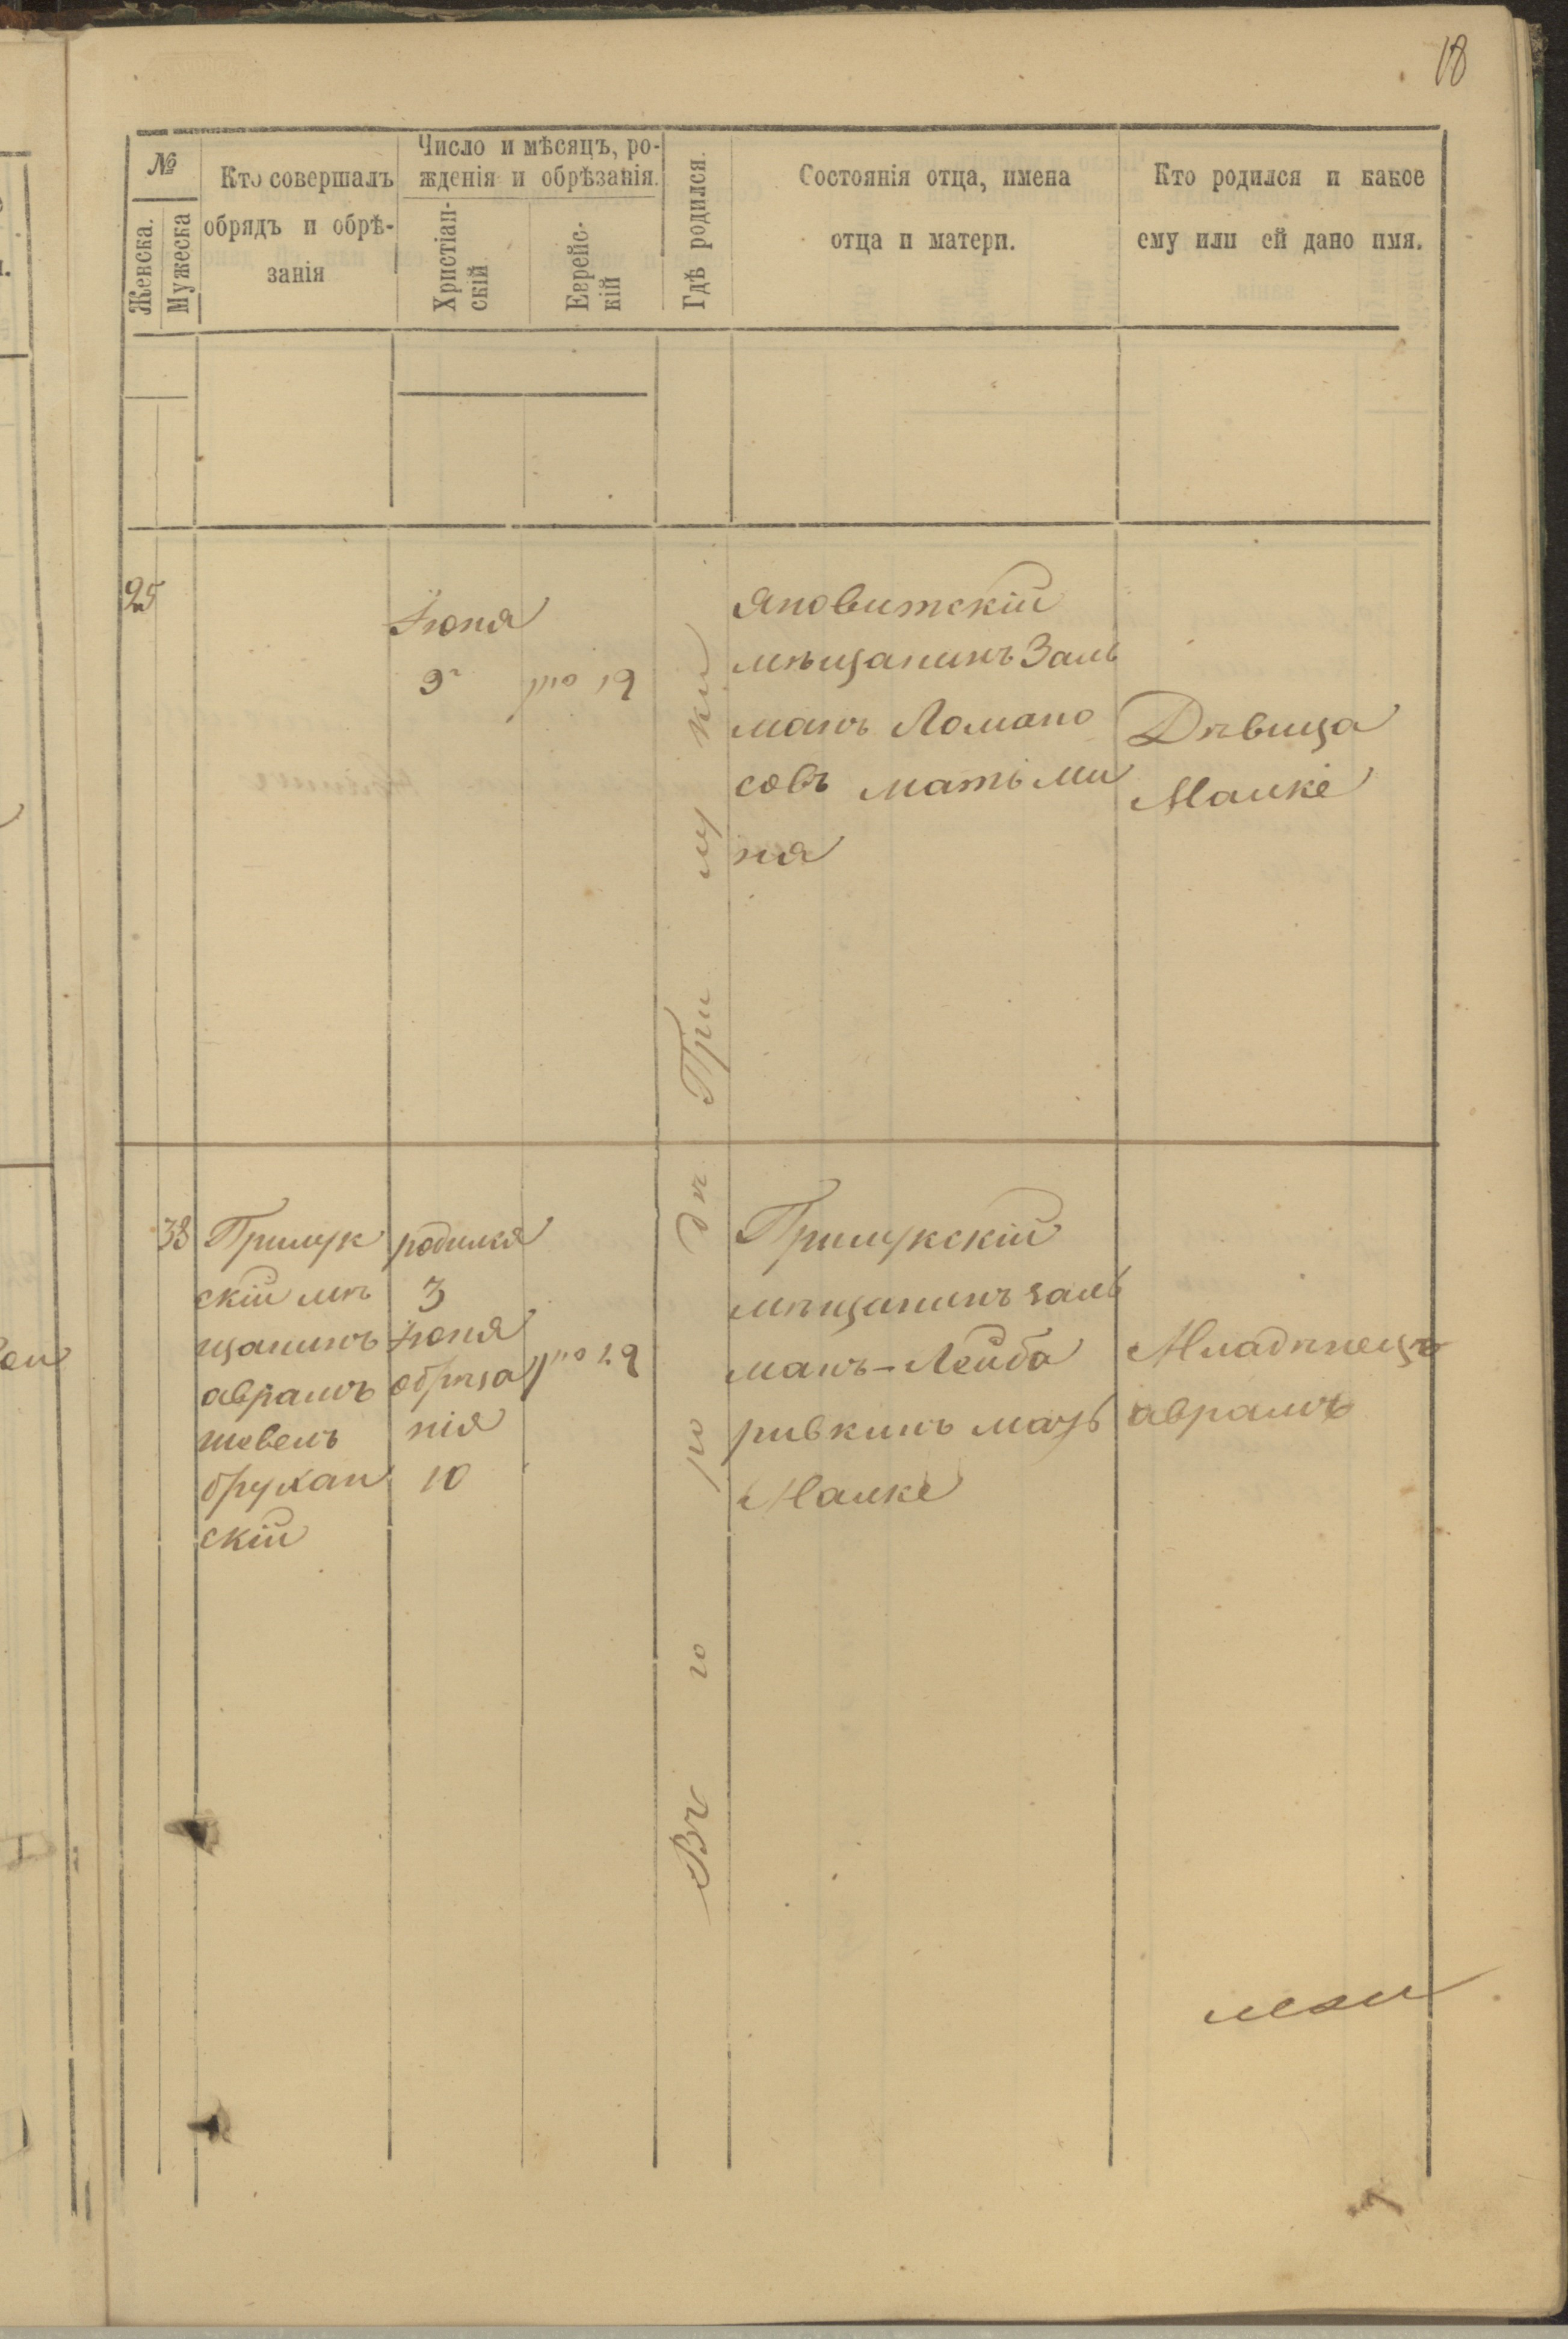 18
№
Женска.
Мужеска
Кто совершалъ
обрядъ и обрѣ-
занія
Число и мѣсяцъ, ро-
жденія и обрѣзанія.
Христіан-
скій
Еврейс-
кій
Гдѣ родился.
Состоянія отца, имена
отца и матери.
Кто родился и какое
ему или ей дано имя.
25
Іюня
9
Яновитскій
мѣщанинъ Заль
манъ Ломано
совъ мать Ми
ня
Дѣвица
Малке
Въ го ро дѣ При лу ки
38
Прилук
скій мѣ
щанинъ
аврамъ
шевель
брухан
скій
родился
3
Іюня
обрѣза
нія
10
Прилукскій
мѣщанинъ заль
манъ-Лейба
ривкинъ мать
Малке
Младѣнецъ
аврамъ